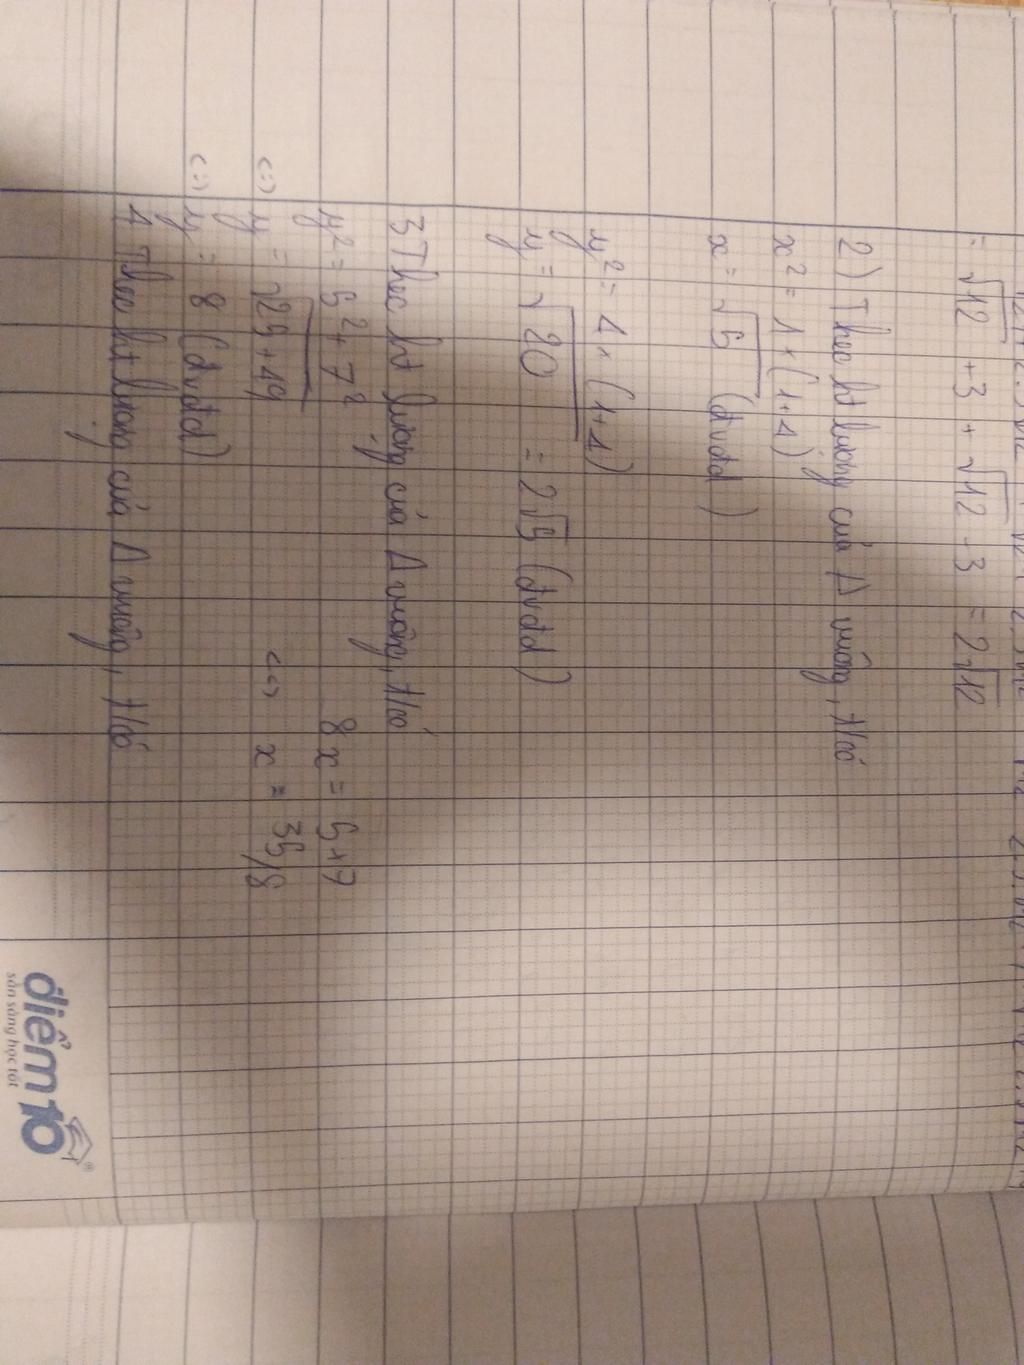 = √12 + 3 + √12 - 3 = 2√12
2) Theo ht lượng của Δ vuông, ta có
x² = 1 × (1+4)
x = √5 (đvđd)
y² = 4 × (1+4)
y = √20 = 2√5 (đvđd)
3 Theo ht lượng của Δ vuông, ta có
y² = 5² + 7² 8x = 5 × 7
<=> y = √25+49 <=> x = 35/8
<=> y = 8 (đvđd)
4 Theo ht lượng của Δ vuông, ta có
điểm 10
sẵn sàng học tốt